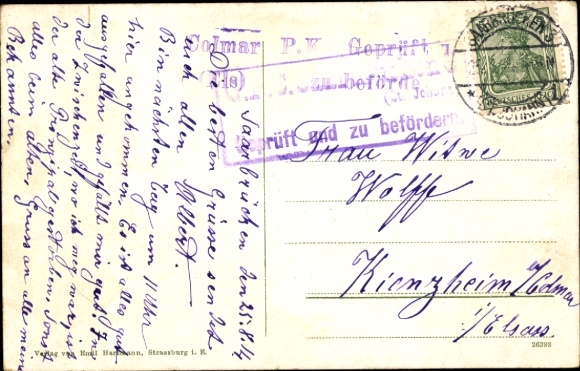 Colmar P.K. Geprüft u.
(Els) zu beförde
(St. Johan
Geprüft und zu befördern.
SAARBRÜCKEN
DEUTSCHES REICH
Frau Witwe
Wolff
Kienzheim / Colmar
i/Elsass.
Saarbrücken den 25.8.14
Die besten Grüsse sendet
euch allen Albert.
Bin nächsten Tag um 11 Uhr
hier angekommen. Es ist alles gut
ausgefallen und gefällt mir gut. In
der zwischenzeit, wo ich weg war, ist
der alte Prinzipal gestorben. Sonst
alles beim alten, Gruss an alle meine
Bekannten.
Verlag von Emil Hartmann, Strassburg i. E.
26393